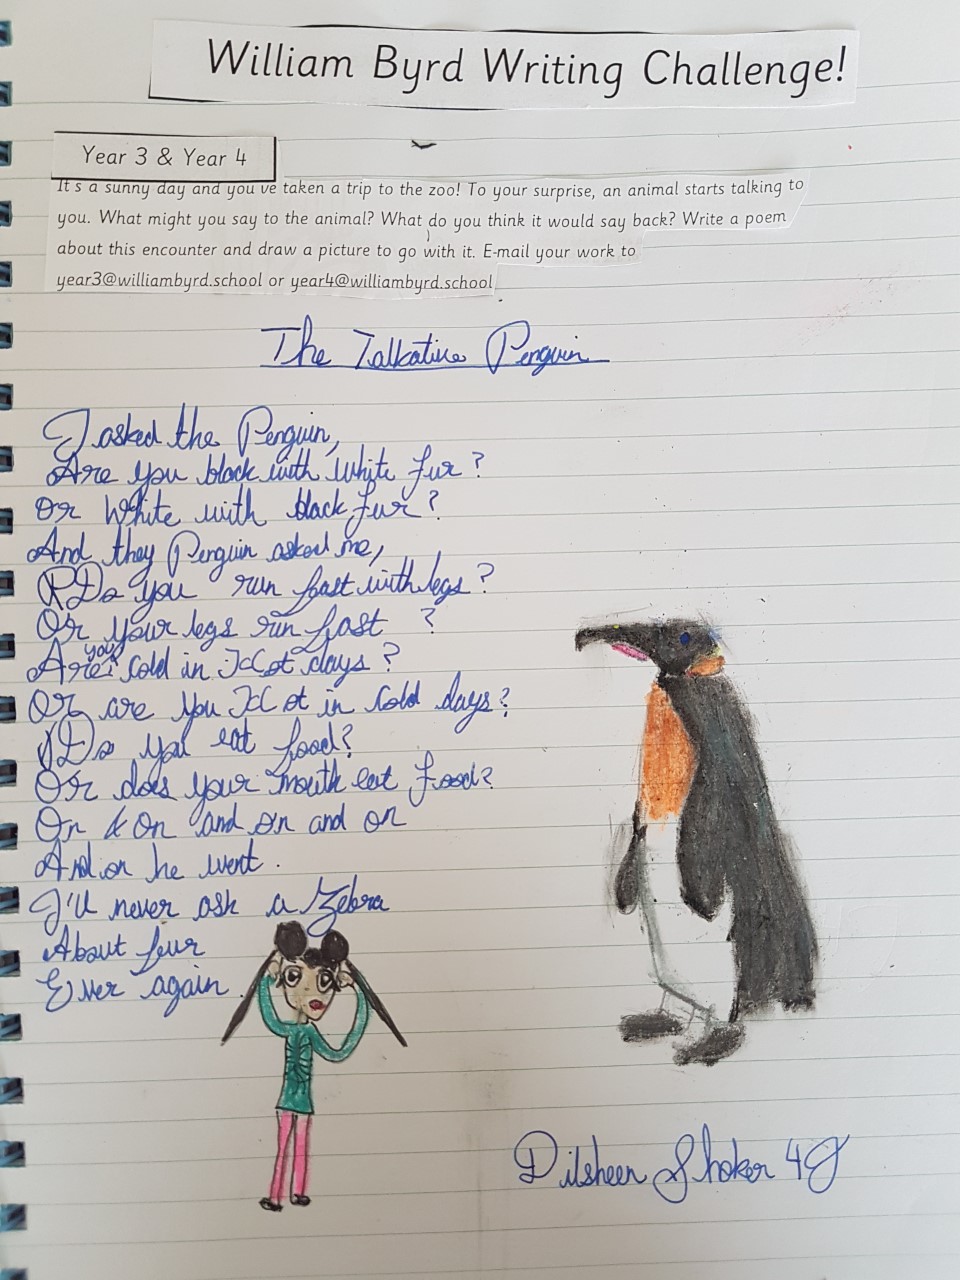 William Byrd Writing Challenge!
Year 3 & Year 4
It's a sunny day and you've taken a trip to the zoo! To your surprise, an animal starts talking to
you. What might you say to the animal? What do you think it would say back? Write a poem
about this encounter and draw a picture to go with it. E-mail your work to
year3@williambyrd.school or year4@williambyrd.school
The Talkative Penguin
I asked the Penguin,
Are you black with white fur?
Or White with black fur?
And they Penguin asked me,
Do you run fast with legs?
Or your legs run fast ?
Are you cold in Hot days?
Or are you Hot in cold days?
Do you eat food?
Or does your mouth eat food?
On & On and on and on
And on he went.
I'll never ask a Zebra
About fur
Ever again.
Dilsheen Shoker 4J